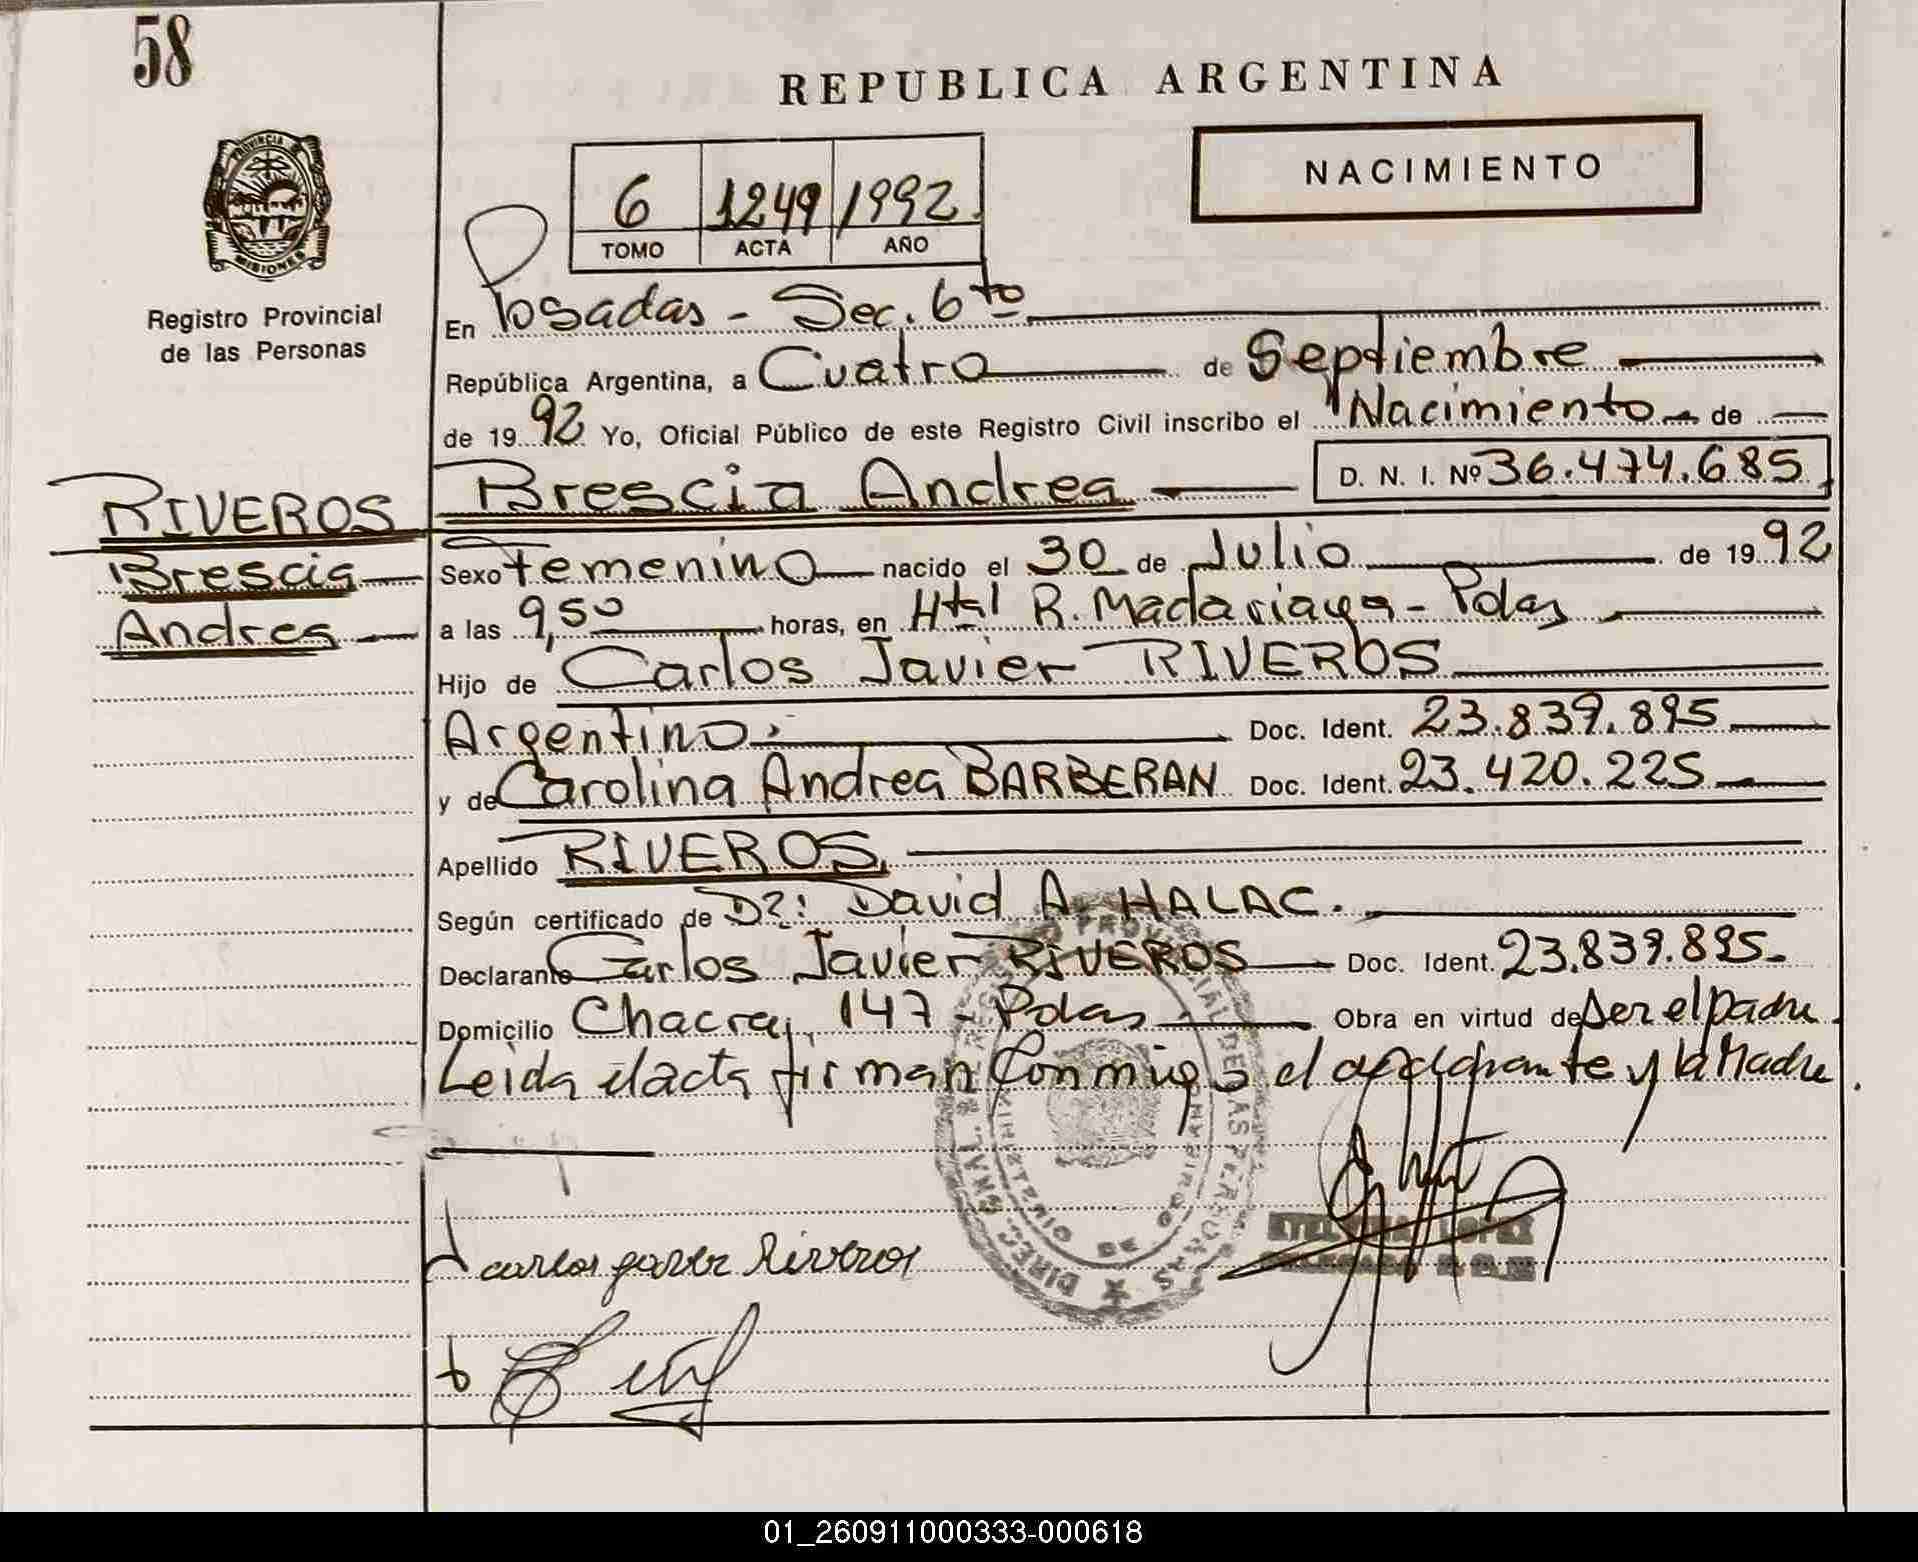 58
REPUBLICA ARGENTINA
NACIMIENTO
6 1249 1992
TOMO ACTA AÑO
PROVINCIA DE
MISIONES
Registro Provincial
de las Personas
En Posadas - Sec. 6to
República Argentina, a Cuatro de Septiembre
de 1992 Yo, Oficial Público de este Registro Civil inscribo el Nacimiento de
Brescia Andrea D. N. I. Nº 36.474.685
RIVEROS
Brescia
Andrea
Sexo Femenino nacido el 30 de Julio de 1992
a las 9,50 horas, en Htal R. Madariaga - Pdas
Hijo de Carlos Javier RIVEROS
Argentino. Doc. Ident. 23.839.895
y de Carolina Andrea BARBERAN Doc. Ident. 23.420.225
Apellido RIVEROS.
Según certificado de Dr: David A. HALAC.
Declarante Carlos Javier RIVEROS Doc. Ident. 23.839.895.
Domicilio Chacra, 147 - Pdas Obra en virtud de Ser el padre.
Leida el acta firman Conmigo el declarante y la Madre.
LOPEZ
carlos javier Riveros
01_260911000333-000618